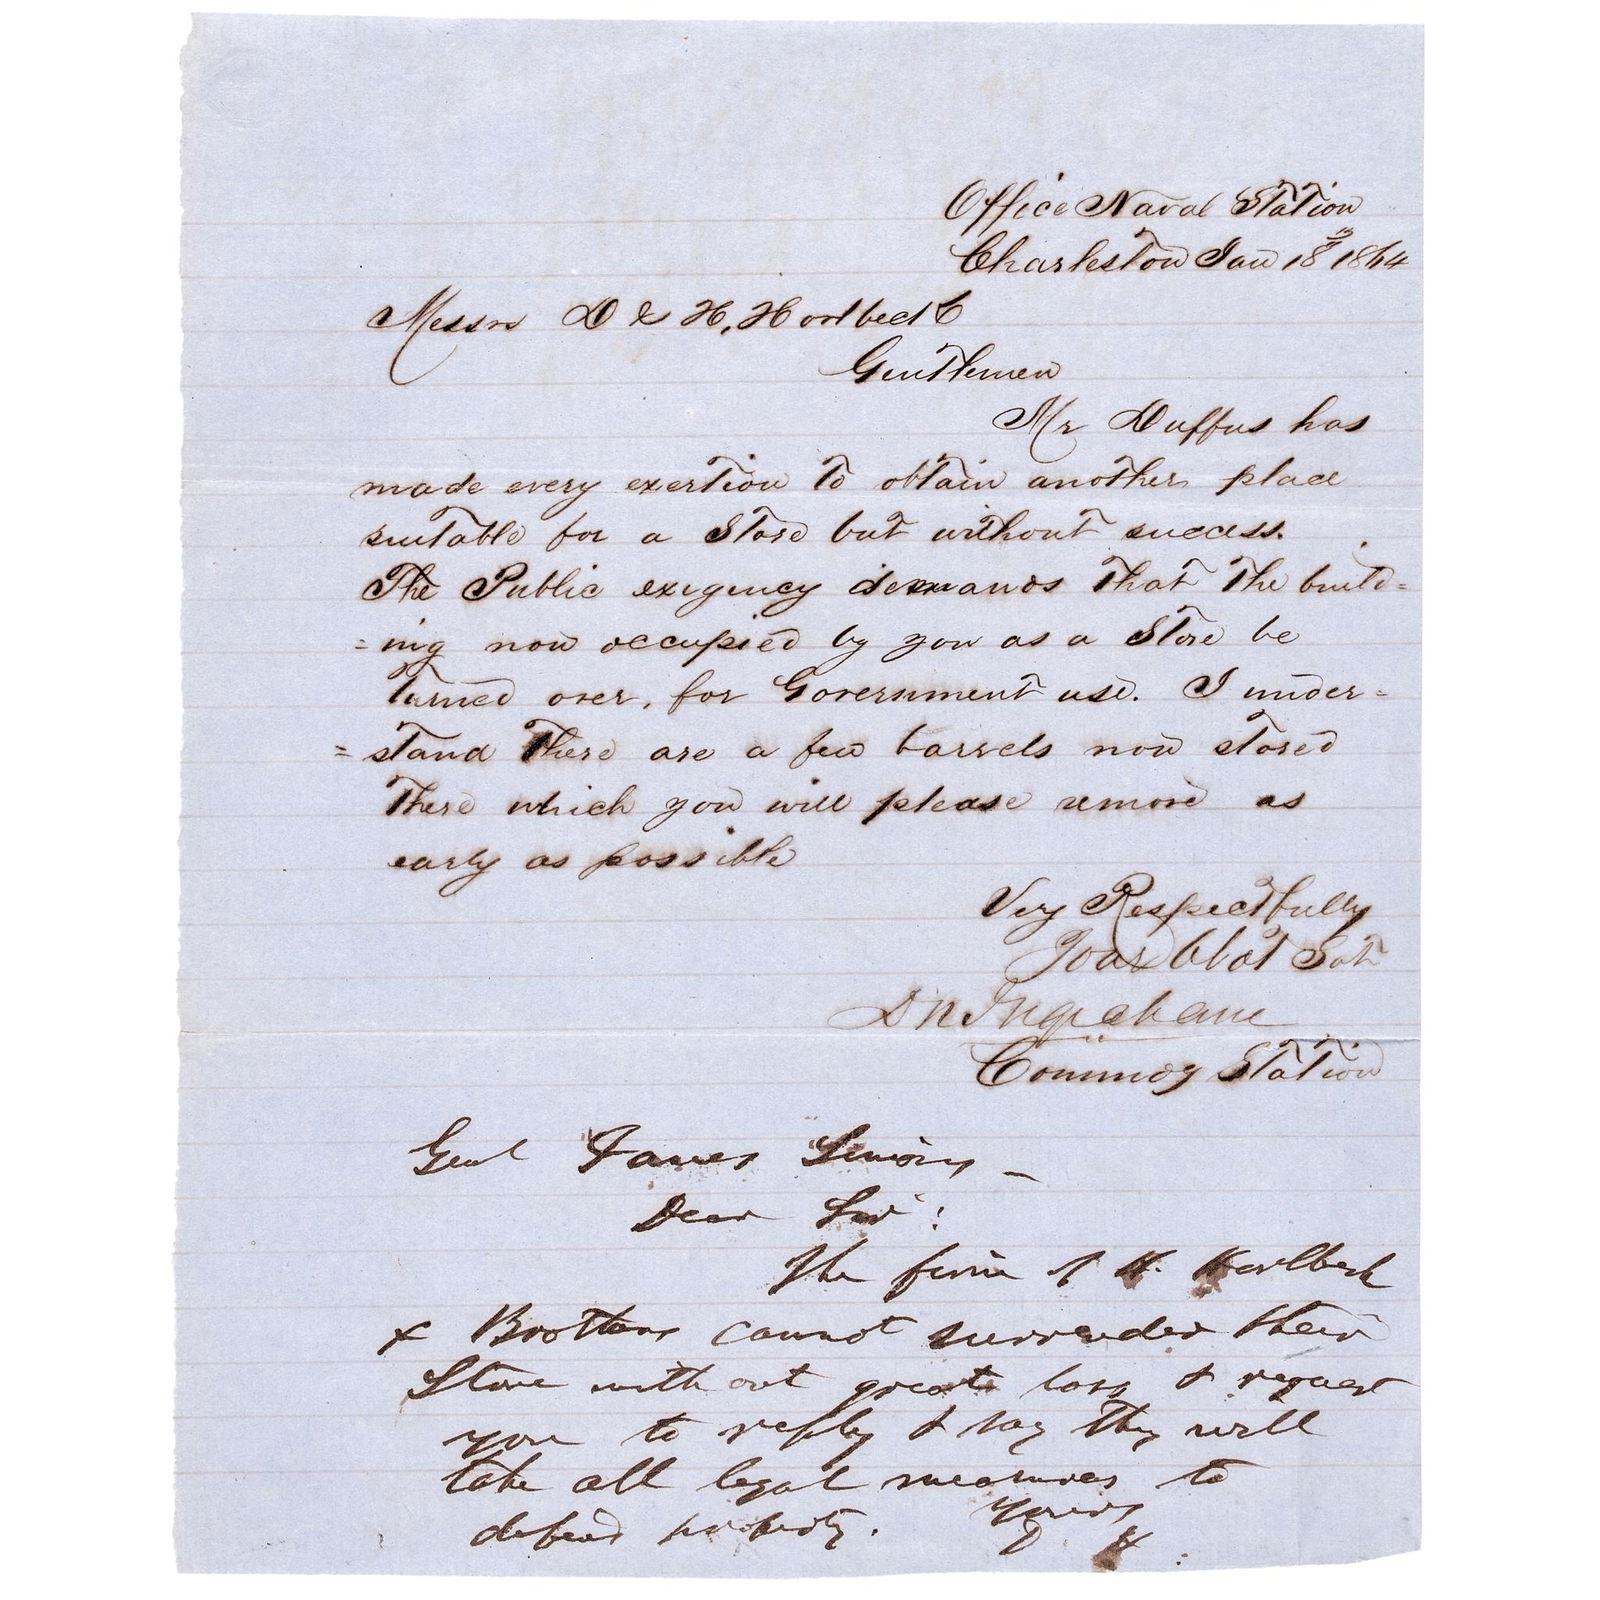 Office Naval Station
Charleston Jan 18th 1864
Messrs D & H. Horlbeck
Gentlemen
Mr Duffus has
made every exertion to obtain another place
suitable for a Store but without success.
The Public exigency demands that the build=
=ing now occupied by you as a Store be
turned over, for Government use. I under=
=stand there are a few barrels now stored
there which you will please remove as
early as possible
Very Respectfully
Your Obdt Svt
D N Ingraham
Commdg Station
Genl James Simons –
Dear Sir :
The firm of H. Horlbeck
& Brothers cannot surrender their
Store with out great loss & request
you to reply & say they will
take all legal measures to
defend property. Yours
D H :